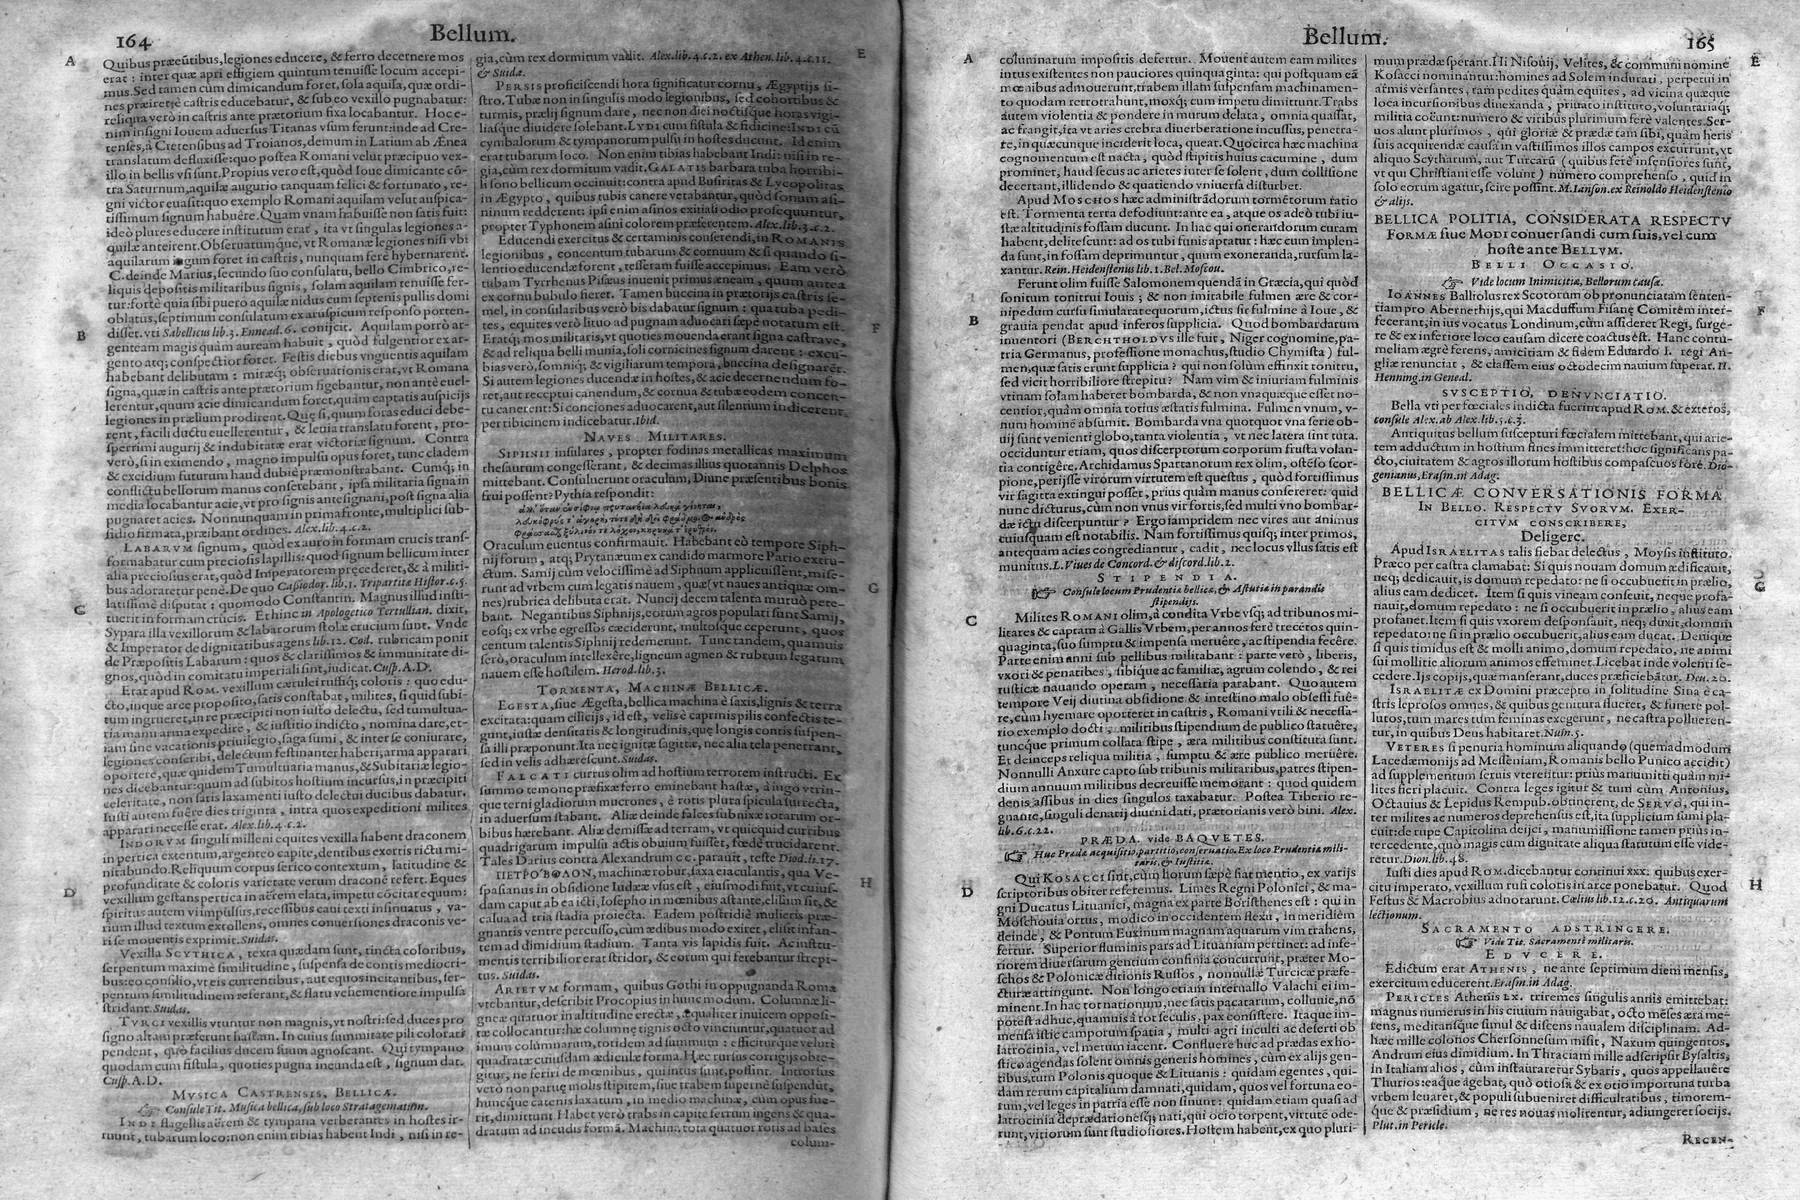 164
Bellum.
A
Quibus præeūtibus, legiones educere, & ferro decernere mos
erat: inter quæ apri effigiem quintum tenuisse locum accepi-
mus. Sed tamen cùm dimicandum foret, sola aquila, quæ ordi-
nes præiret, è castris educebatur, & sub eo vexillo pugnabatur:
reliqua verò in castris ante prætorium fixa locabantur. Hoc e-
nim insigni Iouem aduersus Titanas vsum ferunt: inde ad Cre-
tenses, à Cretensibus ad Troianos, demum in Latium ab Ænea
translatum defluxisse: quo postea Romani velut præcipuo vex-
illo in bellis vsi sunt. Propius vero est, quòd Ioue dimicante cō-
tra Saturnum, aquilæ augurio tanquam felici & fortunato, re-
gni victor euasit: quo exemplo Romani aquilam velut auspica-
tissimum signum habuêre. Quam vnam habuisse non satis fuit:
ideò plures educere institutum erat, ita vt singulas legiones a-
quilæ anteirent. Obseruatumque, vt Romanæ legiones nisi vbi
aquilarum iugum foret in castris, nunquam ferè hybernarent.
C. deinde Marius, secundo suo consulatu, bello Cimbrico, re-
liquis depositis militaribus signis, solam aquilam tenuisse fer-
tur: fortè quia sibi puero aquilæ nidus cum septenis pullis domi
oblatus, septimum consulatum ex aruspicum responso porten-
B
disset. vti Sabellicus lib. 3. Ennead. 6. conijcit. Aquilam porrò ar-
genteam magis quàm auream habuit, quòd fulgentior ex ar-
gento atq; conspectior foret. Festis diebus vnguentis aquilam
habebant delibutam: miræq; obseruationis erat, vt Romana
signa, quæ in castris ante prætorium figebantur, non antè euel-
lerentur, quum acie dimicandum foret, quàm captatis auspicijs
legiones in prælium prodirent. Que si, quum foras educi debe-
rent, facili ductu euellerentur, & leuia translatu forent, pro-
sperrimi augurij & indubitatæ erat victoriæ signum. Contra
verò, si in eximendo, magno impulsu opus foret, tunc cladem
& excidium futurum haud dubiè præmonstrabant. Cumq; in
conflictu bellorum manus conserebant, ipsa militaria signa in
media locabantur acie, vt pro signis antesignani, post signa alia
pugnaret acies. Nonnunquam in prima fronte, multiplici sub-
sidio firmata, præibant ordines. Alex. lib. 4. c. 2.
LABARVM signum, quòd ex auro in formam crucis trans-
formabatur cum preciosis lapillis: quod signum bellicum inter
alia preciosius erat, quòd Imperatorem præcederet, & à militi-
bus adoraretur penè. De quo Cassiodor. lib. 1. Tripartitæ Histor. c. 5.
C
latissimè disputat: quomodo Constantin. Magnus illud insti-
tuerit in formam crucis. Et hinc in Apologetico Tertullian. dixit,
Sypara illa vexillorum & labarorum stolæ crucium sunt. Vnde
& Imperator de dignitatibus agens lib. 12. Cod. rubricam ponit
de Præpositis Labarum: quos & clarissimos & immunitate di-
gnos, quòd in comitatu imperiali sint, iudicat. Cusp. A.D.
Erat apud ROM. vexillum cærulei russiq; coloris: quo edu-
cto, inque arce proposito, satis constabat, milites, si quid subi-
tum ingrueret, in re præcipiti non iusto delectu, sed tumultua-
ria manu arma expedire, & iustitio indicto, nomina dare, et-
iam sine vacationis priuilegio, saga sumi, & inter se coniurare,
legiones conscribi, delectum festinanter haberi, arma apparari
oportere, quæ quidem Tumultuaria manus, & Subitariæ legio-
nes dicebantur: quum ad subitos hostium incursus, in præcipiti
celeritate, non satis laxamenti iusto delectui ducibus dabatur.
Iusti autem fuêre dies triginta, intra quos expeditioni milites
apparari necesse erat. Alex. lib. 4. c. 2.
INDORVM singuli milleni equites vexilla habent draconem
in pertica extentum, argenteo capite, dentibus exortis rictu mi-
nitabundo. Reliquum corpus serico contextum, latitudine &
profunditate & coloris varietate verum draconē refert. Eques
D
vexillum gestans pertica in aërem elata, impetu cōcitat equum:
spiritus autem vi impulsus, recessibus caui texti insinuatus, va-
rium illud textum extollens, omnes conuersiones draconis ve-
ri se mouentis exprimit. Suidas.
Vexilla SCYTHICA, texta quædam sunt, tincta coloribus,
serpentum maximè similitudine, suspensa de contis mediocri-
bus: eo consilio, vt eis currentibus, aut equos incitantibus, ser-
pentum similitudinem referant, & flatu vehementiore impulsa
stridant. Suidas.
TVRCI vexillis vtuntur non magnis, vt nostri: sed duces pro
signo altam præferunt hastam. In cuius summitate pili colorati
pendent, quò facilius ducem suum agnoscant. Qui tympano
quodam cum fistula, quoties pugna ineunda est, signum dat.
Cusp. A.D.
MVSICA CASTRENSIS, BELLICA.
☞ Consule Tit. Musica bellica, sub loco Stratagematum.
INDI flagellis aërem & tympana verberantes in hostes ir-
ruunt, tubarum loco: non enim tibias habent Indi, nisi in re-
E
gia, cùm rex dormitum vadit. Alex. lib. 4. c. 2. ex Athen. lib. 4. c. 11.
& Suida.
PERSIS proficiscendi hora significatur cornu, Ægyptijs si-
stro. Tubæ non in singulis modo legionibus, sed cohortibus &
turmis, prælij signum dare, nec non diei noctisque horas vigi-
liasque diuidere solebant. LYDI cum fistula & fidicine: INDI cū
cymbalorum & tympanorum pulsu in hostes ducunt. Id enim
erat tubarum loco. Non enim tibias habebant Indi: nisi in re-
gia, cùm rex dormitum vadit. GALATIS barbara tuba horribi-
li sono bellicum occinuit: contra apud Busiritas & Lycopolitas
in Ægypto, quibus tubis canere vetabantur, quòd sonum asi-
ninum redderent: ipsi enim asinos exitiali odio prosequuntur,
propter Typhonem asini colorem præferentem. Alex. lib. 3. c. 2.
Educendi exercitus & certaminis conserendi, in ROMANIS
legionibus, concentum tubarum & cornuum & si quando si-
lentio educendæ forent, tesseram fuisse accepimus. Eam verò
tubam Tyrrhenus Pisæus inuenit primus æneam, quum antea
ex cornu bubulo fieret. Tamen buccina in prætorijs castris se-
mel, in consularibus verò bis dabatur signum: qua tuba pedi-
F
tes, equites verò lituo ad pugnam aduocari sæpè notatum est.
Eratq; mos militaris, vt quoties mouenda erant signa castraue,
& ad reliqua belli munia, soli cornicines signum darent: excu-
bias verò, somniq; & vigiliarum tempora, buccina designaret.
Si autem legiones ducendæ in hostes, & acie decernendum fo-
ret, aut receptui canendum, & cornua & tubæ eodem concen-
tu canerent: Si conciones aduocarent, aut silentium indicerent,
per tibicinem indicebatur. Ibid.
NAVES MILITARES.
SIPHNII insulares, propter fodinas metallicas maximum
thesaurum congesserant, & decimas illius quotannis Delphos
mittebant. Consuluerunt oraculum, Diune præsentibus bonis
frui possent? Pythia respondit:
Oraculum euentus confirmauit. Habebant eo tempore Siph-
nij forum, atq; Prytanæum ex candido marmore Pario extru-
ctum. Samij cùm velocissimè ad Siphnum applicuissent, mise-
G
runt ad vrbem cum legatis nauem, quæ (vt naues antiquæ om-
nes) rubrica delibuta erat. Nuncij decem talenta mutuò pete-
bant. Negantibus Siphnijs, eorum agros populati sunt Samij,
eosq; ex vrbe egressos cæciderunt, multosque ceperunt, quos
centum talentis Siphnij redemerunt. Tunc tandem, quamuis
serò, oraculum intellexêre, ligneum agmen & rubrum legatum
nauem esse hostilem. Herod. lib. 3.
TORMENTA, MACHINÆ BELLICÆ.
EGESTA, siue Ægesta, bellica machina è saxis, lignis & terra
excitata: quam efficijs, id est, velis è caprinis pilis confectis te-
gunt, iustæ densitatis & longitudinis, quę longis contis suspen-
sa illi præponunt. Ita nec ignitæ sagittæ, nec alia tela penetrant,
sed in velis adhærescunt. Suidas.
FALCATI currus olim ad hostium terrorem instructi. Ex
summo temone præfixæ ferro eminebant hastæ, à iugo vtrin-
que terni gladiorum mucrones, è rotis plura spicula surrecta,
in aduersum stabant. Aliæ deinde falces subnixæ rotarum or-
bibus hærebant. Aliæ demissæ ad terram, vt quicquid curribus
quadrigarum impulsu actis obuium fuisset, fœdè trucidarent.
Tales Darius contra Alexandrum cc. parauit, teste Diod. li. 17.
H
ΠΕΤΡΟΒΟΛΟΝ, machinæ robur, saxa eiaculantis, qua Ve-
spasianus in obsidione Iudææ vsus est, eiusmodi fuit, vt cuius-
dam caput ab ea icti, Iosepho in mœnibus astante, elisum sit, &
calua ad tria stadia proiecta. Eadem postridiè mulieris præ-
gnantis ventre percusso, cùm ædibus modo exiret, elisit infan-
tem ad dimidium stadium. Tanta vis lapidis fuit. Ac instru-
mentis terribilior erat stridor, & eorum qui ferebantur strepi-
tus. Suidas.
ARIETVM formam, quibus Gothi in oppugnanda Roma
vtebantur, describit Procopius in hunc modum. Columnæ li-
gneæ quatuor in altitudine erectæ, æqualiter inuicem opposi-
tæ collocantur: hæ columnę tignis octo vinciuntur, quatuor ad
imum columnarum, totidem ad summum: efficiturque veluti
quadratæ cuiusdam ædiculæ forma. Hæc rursus corrigijs obte-
gitur, ne feriri de mœnibus, qui intus sunt, possint. Introrsus
verò non paruę molis stipitem, siue trabem supernè suspendūt,
huncque catenis laxatum, in medio machinæ, cùm opus fue-
rit, dimittunt. Habet verò trabs in capite ferrum ingens & qua-
dratum ad incudis formā. Machina tota quatuor rotis ad bases
colum-
Bellum.
165
A
columnarum impositis defertur. Mouent autem eam milites
intus existentes non pauciores quinquaginta: qui postquam eā
mœnibus admouerunt, trabem illam suspensam machinamen-
to quodam retro trahunt, moxq; cum impetu dimittunt. Trabs
autem violentia & pondere in murum delata, omnia quassat,
ac frangit, ita vt aries crebra diuerberatione incussus, penetra-
re, in quæcunque inciderit loca, queat. Quocirca hæc machina
cognomentum est nacta, quòd stipitis huius cacumine, dum
prominet, haud secus ac arietes inter se solent, dum collisione
decertant, illidendo & quatiendo vniuersa disturbet.
Apud MOSCHOS hæc administrādorum tormētorum ratio
est. Tormenta terra defodiunt: ante ea, atque os adeò tubi iu-
stæ altitudinis fossam ducunt. In hac qui onerandorum curam
habent, delitescunt: ad os tubi funis aptatur: hæc cum implen-
da sunt, in fossam deprimuntur, quum exoneranda, rursum la-
xantur. Rein. Heidenstenius lib. 1. Bel. Moscou.
Ferunt olim fuisse Salomonem quendā in Græcia, qui quòd
sonitum tonitrui Iouis; & non imitabile fulmen ære & cor-
B
nipedum cursu simularat equorum, ictus sit fulmine à Ioue, &
grauia pendat apud inferos supplicia. Quod bombardarum
inuentori (BERCHTHOLDVS ille fuit, Niger cognomine, pa-
tria Germanus, professione monachus, studio Chymista) ful-
men, quæ satis erunt supplicia? qui non solùm effinxit tonitru,
sed vicit horribiliore strepitu? Nam vim & iniuriam fulminis
vtinam solam haberet bombarda, & non vnaquæque esset no-
centior, quàm omnia totius æstatis fulmina. Fulmen vnum, v-
num hominē absumit. Bombarda vna quotquot vna serie ob-
uij sunt venienti globo, tanta violentia, vt nec latera sint tuta.
occiduntur etiam, quos discerptorum corporum frusta volan-
tia contigêre. Archidamus Spartanorum rex olim, ostēso scor-
pione, perijsse virorum virtutem est questus, quòd fortissimus
vir sagitta extingui posset, prius quàm manus consereret: quid
nunc dicturus, cùm non vnus vir fortis, sed multi vno bombar-
dæ ictu discerpuntur? Ergo iampridem nec vires aut animus
cuiusquam est notabilis. Nam fortissimus quisq; inter primos,
antequam acies congrediantur, cadit, nec locus vllus satis est
munitus. L. Viues de Concord. & discord. lib. 2.
STIPENDIA.
☞ Consule locum Prudentiæ bellicæ, & Astutiæ in parandis
stipendijs.
C
Milites ROMANI olim, à condita Vrbe vsq; ad tribunos mi-
litares & captam à Gallis Vrbem, per annos ferè trecētos quin-
quaginta, suo sumptu & impensa meruêre, ac stipendia fecêre.
Parte enim anni sub pellibus militabant: parte verò, liberis,
vxori & penatibus, sibique ac familiæ, agrum colendo, & rei
rusticæ nauando operam, necessaria parabant. Quo autem
tempore Veij diutina obsidione & intestino malo obsessi fuê-
re, cùm hyemare oporteret in castris, Romani vtili & necessa-
rio exemplo docti, militibus stipendium de publico statuêre,
tuncque primum collata stipe, æra militibus constituta sunt.
Et deinceps reliqua militia, sumptu & ære publico meruêre.
Nonnulli Anxure capto sub tribunis militaribus, patres stipen-
dium annuum militibus decreuisse memorant: quod quidem
denis assibus in dies singulos taxabatur. Postea Tiberio re-
gnante, singuli denarij diurni dati, prætorianis verò bini. Alex.
lib. 6. c. 22.
PRÆDA. vide BAQVETES.
☞ Huc Prædæ acquisitio, partitio, conseruatio. Ex loco Prudentiæ mili-
taris, & Iustitiæ.
D
Qui KOSACCI sint, cùm horum sæpè fiat mentio, ex varijs
scriptoribus obiter referemus. Limes Regni Polonici, & ma-
gni Ducatus Lituanici, magna ex parte Boristhenes est: qui in
Moschouia ortus, modico in occidentem flexu, in meridiem
deinde, & Pontum Euxinum magnam aquarum vim trahens,
fertur. Superior fluminis pars ad Lituaniam pertinet: ad infe-
riorem diuersarum gentium confinia concurrunt, præter Mo-
schos & Polonicæ ditionis Russos, nonnullæ Turcicæ præfe-
cturæ attingunt. Non longo etiam interuallo Valachi ei im-
minent. In hac tot nationum, nec satis pacatarum, colluuie, nō
potest adhuc, quamuis à tot seculis, pax consistere. Itaque im-
mensa istic camporum spatia, multi agri inculti ac deserti ob
latrocinia, vel metum iacent. Confluere huc ad prædas ex ho-
stico agendas solent omnis generis homines, cùm ex alijs gen-
tibus, tum Polonis quoque & Lituanis: quidam egentes, qui-
dam rerum capitalium damnati, quidam, quos vel fortuna eo-
rum, vel leges in patria esse non sinunt: quidam etiam quasi ad
latrocinia deprædationesq; nati, qui ocio torpent, virtute ode-
runt, vitiorum sunt studiosiores. Hostem habent, ex quo pluri-
E
mum prædæ sperant. Hi Nisouij, Velites, & communi nomine
Kosacci nominantur: homines ad Solem indurati, perpetui in
armis versantes, tam pedites quàm equites, ad vicina quæque
loca incursionibus diuexanda, priuato instituto, voluntariaq;
militia coëunt: numero & viribus plurimum ferè valentes. Ser-
uos alunt plurimos, qui gloriæ & prædæ tam sibi, quàm heris
suis acquirendæ causa in vastissimos illos campos excurrunt, vt
aliquo Scytharum, aut Turcarū (quibus ferè infensiores sunt,
vt qui Christiani esse volunt) numero comprehenso, quid in
solo eorum agatur, scire possint. M. Ianson. ex Reinoldo Heidenstenio
& alijs.
BELLICA POLITIA, CONSIDERATA RESPECTV
FORMÆ siue MODI conuersandi cum suis, vel cum
hoste ante BELLVM.
BELLI OCCASIO.
☞ Vide locum Inimicitiæ, Bellorum causæ.
F
IOANNES Balliolus rex Scotorum ob pronunciatam senten-
tiam pro Abernethijs, qui Macduffum Fisanę Comitēm inter-
fecerant, in ius vocatus Londinum, cùm assideret Regi, surge-
re & ex inferiore loco causam dicere coactus est. Hanc contu-
meliam ægrè ferens, amicitiam & fidem Eduardo I. regi An-
gliæ renunciat, & classem eius octodecim nauium superat. H.
Henning. in Geneal.
SVSCEPTIO, DENVNCIATIO.
Bella vti per fœciales indicta fuerint apud ROM. & exteros,
consule Alex. ab Alex. lib. 5. c. 3.
Antiquitus bellum suscepturi fœcialem mittebant, qui arie-
tem adductum in hostium fines immitteret: hoc significans pa-
cto, ciuitatem & agros illorum hostibus compascuos fore. Dio-
genianus, Erasm. in Adag.
BELLICÆ CONVERSATIONIS FORMA
IN BELLO. RESPECTV SVORVM. EXER-
CITVM CONSCRIBERE,
Deligere.
G
Apud ISRAELITAS talis fiebat delectus, Moysis instituto.
Præco per castra clamabat: Si quis nouam domum ædificauit,
neq; dedicauit, is domum repedato: ne si occubuerit in prælio,
alius eam dedicet. Item si quis vineam conseuit, neque profa-
nauit, domum repedato: ne si occubuerit in prælio, alius eam
profanet. Item si quis vxorem desponsauit, neq; duxit, domum
repedato: ne si in prælio occubuerit, alius eam ducat. Denique
si quis timidus est & molli animo, domum repedato, ne animi
sui mollitie aliorum animos effeminet. Licebat inde volenti se-
cedere. Ijs copijs, quæ manserant, duces præficiebātur. Deu. 20.
ISRAELITÆ ex Domini præcepto in solitudine Sina è ca-
stris leprosos omnes, & quibus genitura flueret, & funere pol-
lutos, tum mares tum feminas exegerunt, ne castra polluerent-
tur, in quibus Deus habitaret. Num. 5.
VETERES si penuria hominum aliquando (quemadmodum
Lacedæmonijs ad Messeniam, Romanis bello Punico accidit)
ad supplementum seruis vterentur: prius manumitti quàm mi-
lites fieri placuit. Contra leges igitur & tum cùm Antonius,
Octauius & Lepidus Rempub. obtinerent, de SERVO, qui in-
ter milites ac numeros deprehensus est, ita supplicium sumi pla-
cuit: de rupe Capitolina deijci, manumissione tamen prius in-
tercedente, quò magis cum dignitate aliqua statutum esse vide-
retur. Dion. lib. 48.
H
Iusti dies apud ROM. dicebantur continui xxx: quibus exer-
citu imperato, vexillum rufi coloris in arce ponebatur. Quod
Festus & Macrobius adnotarunt. Cælius lib. 12. c. 20. Antiquarum
lectionum.
SACRAMENTO ADSTRINGERE.
☞ Vide Tit. Sacramenti militaris.
EDVCERE.
Edictum erat ATHENIS, ne ante septimum diem mensis,
exercitum educerent. Erasm. in Adag.
PERICLES Atheniēsis LX. triremes singulis annis emittebat:
magnus numerus in his ciuium nauigabat, octo mēses æra me-
rens, meditansque simul & discens naualem disciplinam. Ad-
hæc mille colonos Chersonnesum misit, Naxum quingentos,
Andrum eius dimidium. In Thraciam mille adscripsit Bysaltis,
in Italiam alios, cùm instauraretur Sybaris, quos appellauêre
Thurios: eaque agebat, quò otiosa & ex otio importuna turba
vrbem leuaret, & populi subueniret difficultatibus, timorem-
que & præsidium, ne res nouas molirentur, adiungeret socijs.
Plut. in Pericle.
RECEN-